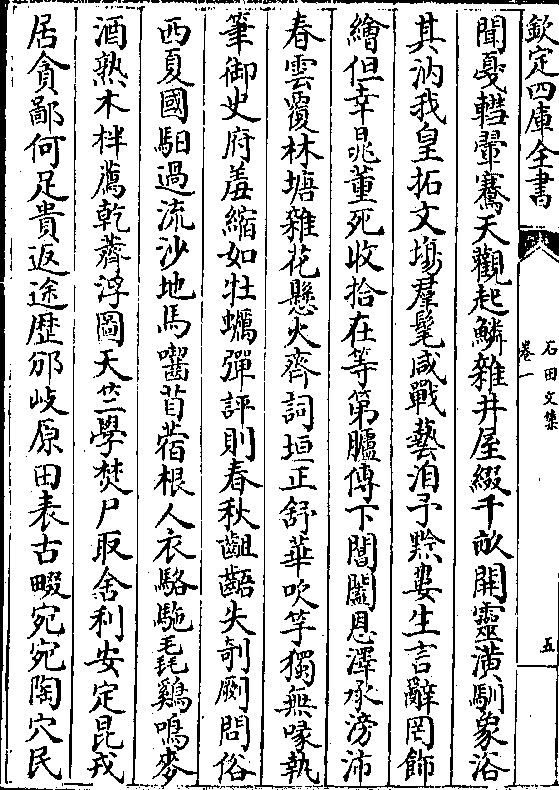 欽定四庫全書
石田文集
卷一
五
聞戞轇翬騫天觀起鱗雜井屋綴千畝開靈潢馴象浴
其汭我皇拓文塲羣髦咸戰藝洎予黙婁生言辭罔飾
繪但幸鼂董死收拾在等第臚傳下閶闔恩澤承滂沛
春雲覆林塘雜花懸火齊詞垣正舒華吹竽獨無喙執
筆御史府羞縮如牡蠣彈評則春秋齟齬失剞劂問俗
西夏國馹過流沙地馬囓苜蓿根人衣駱駞毳鷄鳴麥
酒熟木柈薦乾薺浮圖天竺學焚尸取舍利安定昆戎
居貪鄙何足貴返途歴邠岐原田表古畷宛宛陶穴民